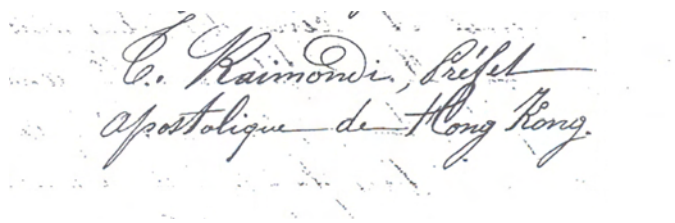 T. Raimondi, Préfet
apostolique de Hong Kong.